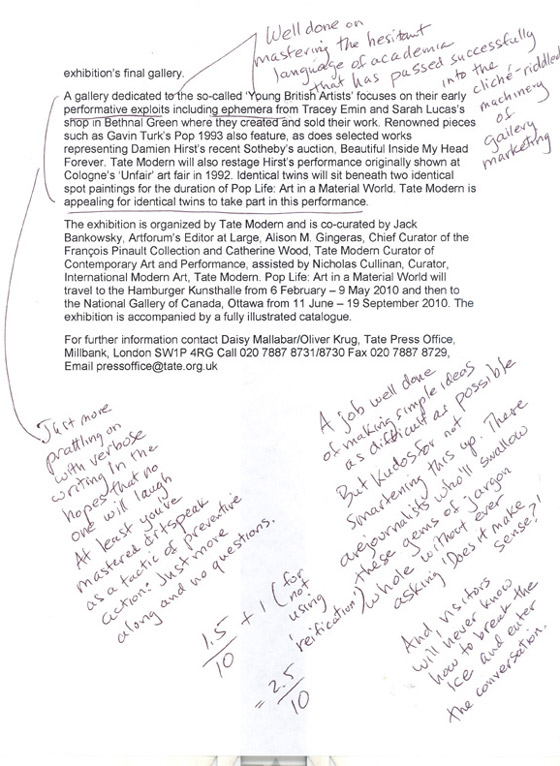 Well done on
mastering the hesitant
language of academia
that has passed successfully
into the
cliché-riddled
machinery
of
gallery
marketing
exhibition's final gallery.
A gallery dedicated to the so-called 'Young British Artists' focuses on their early
performative exploits including ephemera from Tracey Emin and Sarah Lucas's
shop in Bethnal Green where they created and sold their work. Renowned pieces
such as Gavin Turk's Pop 1993 also feature, as does selected works
representing Damien Hirst's recent Sotheby's auction, Beautiful Inside My Head
Forever. Tate Modern will also restage Hirst's performance originally shown at
Cologne's 'Unfair' art fair in 1992. Identical twins will sit beneath two identical
spot paintings for the duration of Pop Life: Art in a Material World. Tate Modern is
appealing for identical twins to take part in this performance.
The exhibition is organized by Tate Modern and is co-curated by Jack
Bankowsky, Artforum's Editor at Large, Alison M. Gingeras, Chief Curator of the
François Pinault Collection and Catherine Wood, Tate Modern Curator of
Contemporary Art and Performance, assisted by Nicholas Cullinan, Curator,
International Modern Art, Tate Modern. Pop Life: Art in a Material World will
travel to the Hamburger Kunsthalle from 6 February – 9 May 2010 and then to
the National Gallery of Canada, Ottawa from 11 June – 19 September 2010. The
exhibition is accompanied by a fully illustrated catalogue.
For further information contact Daisy Mallabar/Oliver Krug, Tate Press Office,
Millbank, London SW1P 4RG Call 020 7887 8731/8730 Fax 020 7887 8729,
Email pressoffice@tate.org.uk
Just more
prattling on
with verbose
writing in the
hopes that no
one will laugh
At least you've
mastered artspeak
as a tactic of preventive
action: Just move
along and no questions.
A job well done
of making simple ideas
as difficult as possible
But Kudos for not
smartening this up. There
are journalists who'll swallow
these gems of jargon
whole without ever
asking 'Does it make
sense?'!
And visitors
will never know
how to break the
ice and enter
the conversation.
1.5/10 + 1 (for
not
using
'reification')
= 2.5/10